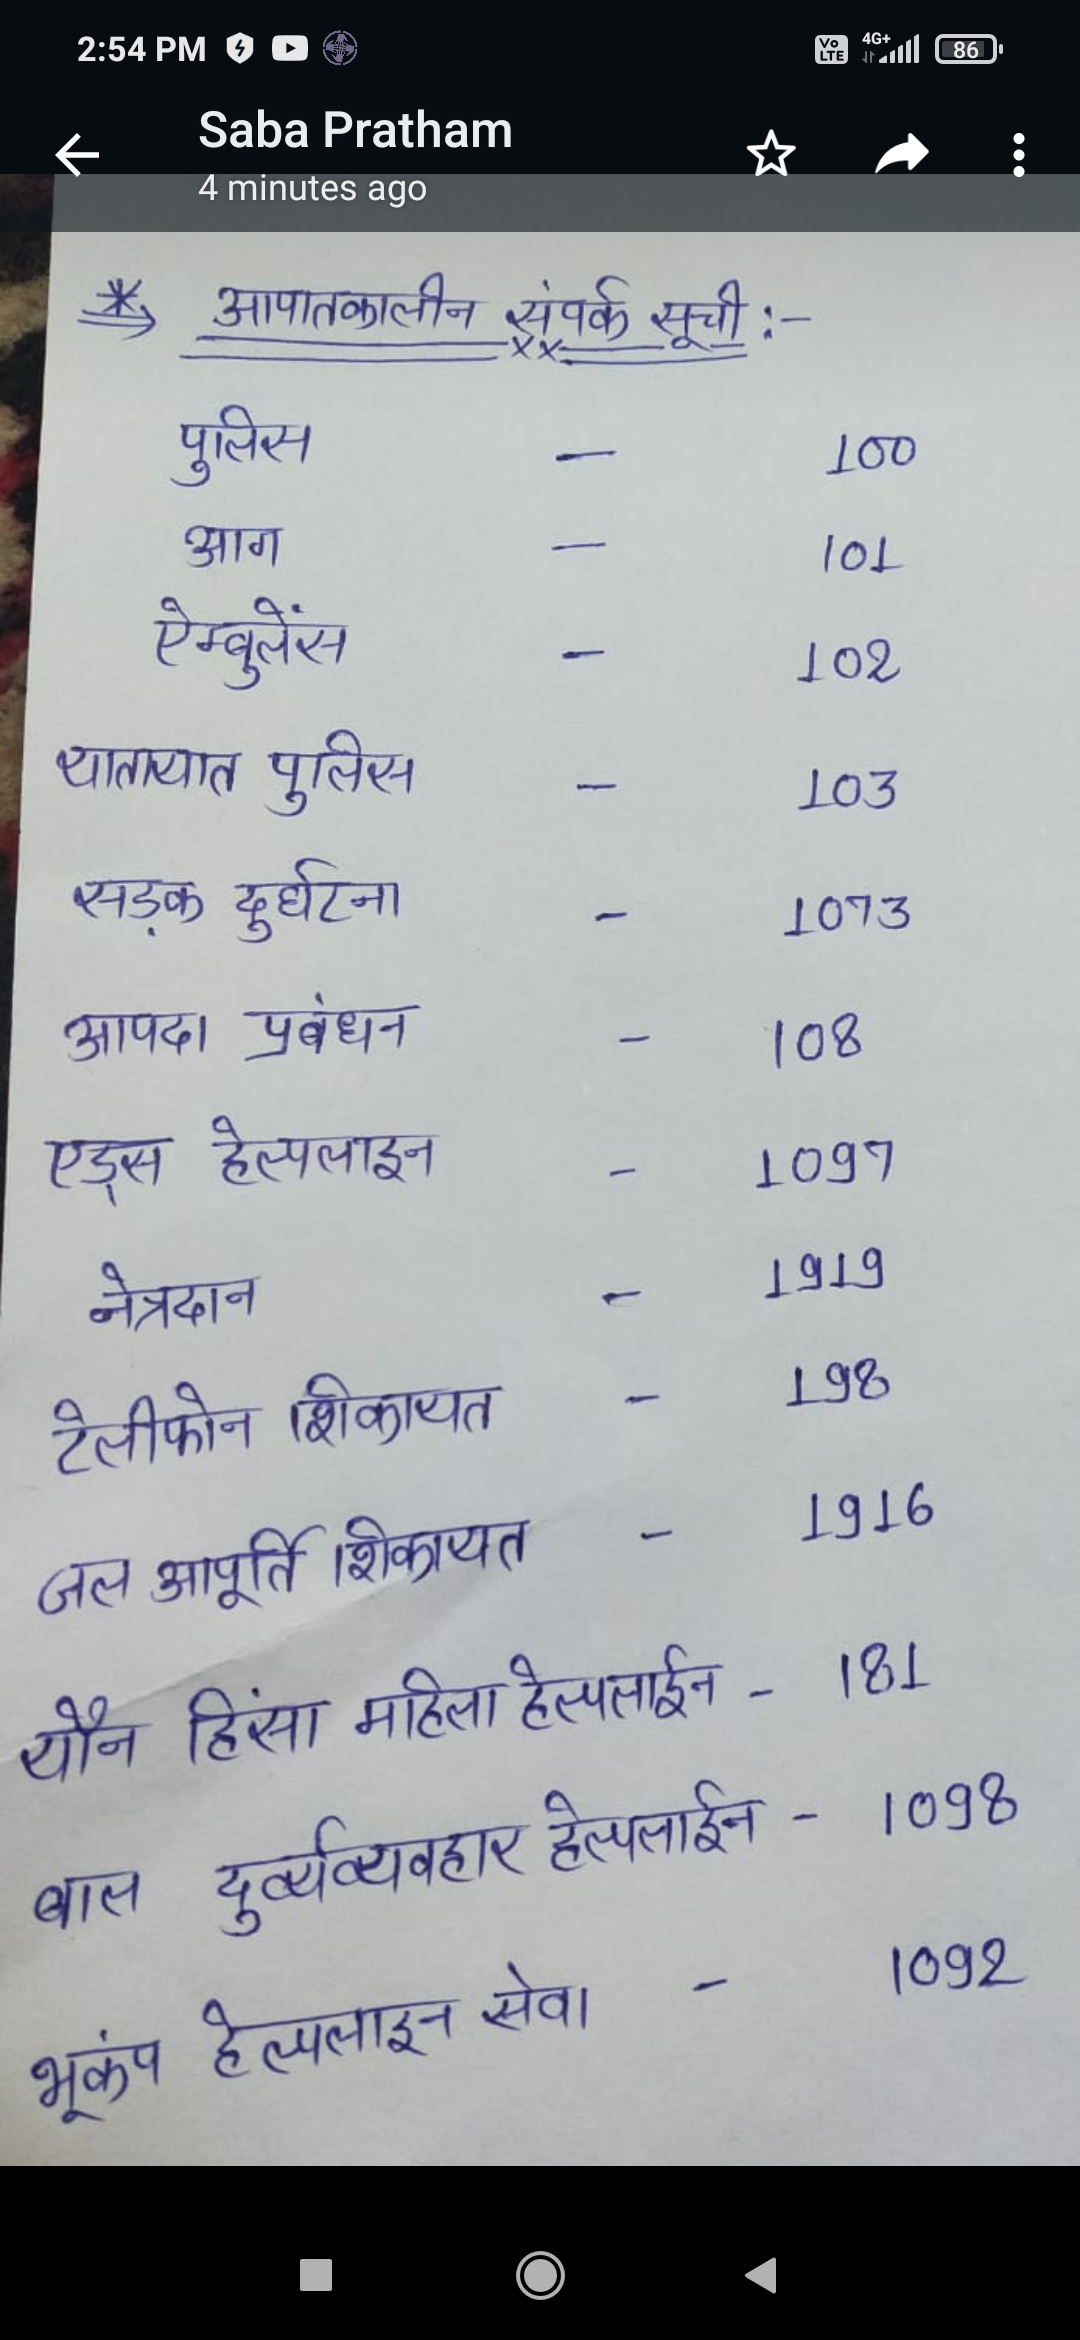 2:54 PM
Vo LTE 4G+ 86
Saba Pratham
4 minutes ago
* आपातकालीन संपर्क सूची :-
पुलिस — 100
आग — 101
ऐम्बुलेंस — 102
यातायात पुलिस — 103
सड़क दुर्घटना — 1073
आपदा प्रबंधन - 108
एड्स हेल्पलाइन - 1097
नेत्रदान - 1919
टेलीफोन शिकायत - 198
जल आपूर्ति शिकायत - 1916
यौन हिंसा महिला हेल्पलाईन - 181
बाल दुर्व्यव्यवहार हेल्पलाईन - 1098
भूकंप हेल्पलाइन सेवा - 1092